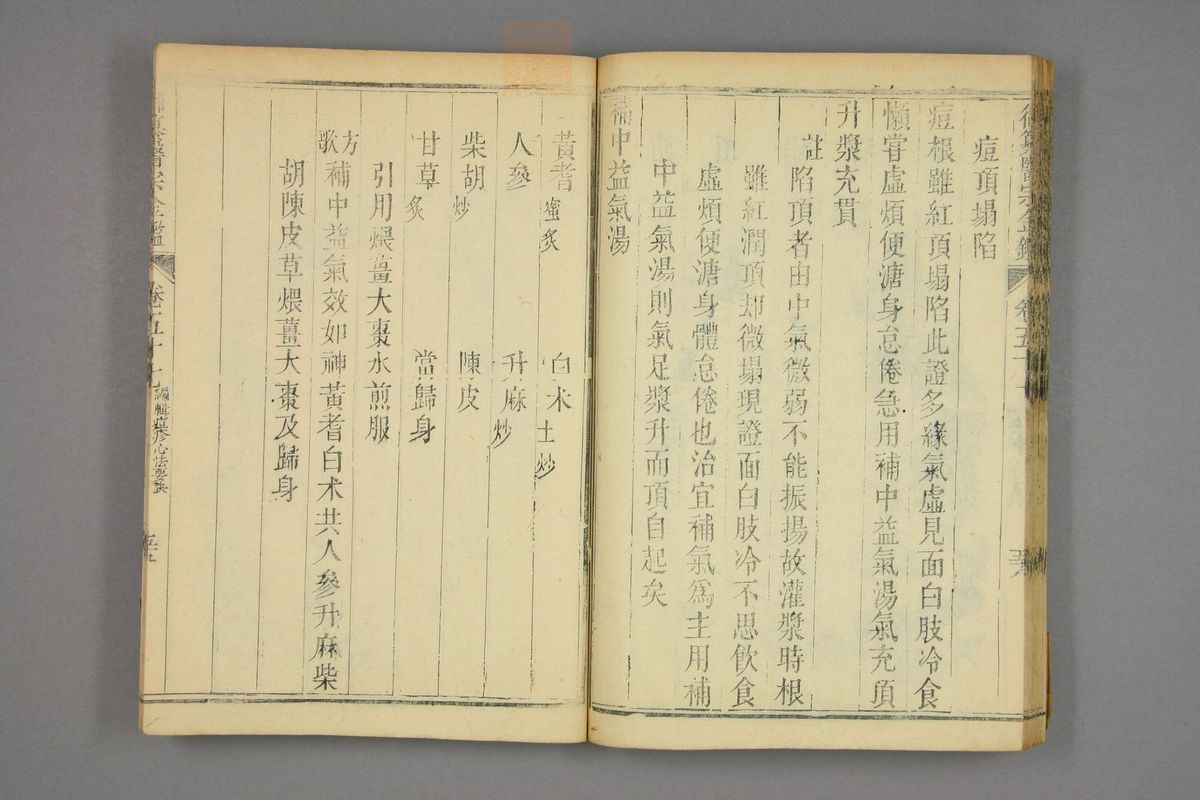 痘頂塌陷
痘根雖紅頂塌陷此證多緣氣虛見面白肢冷食
懶嘗虛煩便溏身怠倦急用補中益氣湯氣充頂
升漿充貫
註陷頂者由中氣微弱不能振揚故灌漿時根
雖紅潤頂却微塌現證面白肢冷不思飲食
虛煩便溏身體怠倦也治宜補氣爲主用補
中益氣湯則氣足漿升而頂自起矣
補中益氣湯
黃耆蜜炙 白术土炒
人參 升麻炒
柴胡炒 陳皮
甘草炙 當歸身
引用煨薑大棗水煎服
方歌 補中益氣效如神黃耆白术共人參升麻柴
胡陳皮草煨薑大棗及歸身
醫宗金鑑 卷五十 編輯痘疹心法要訣